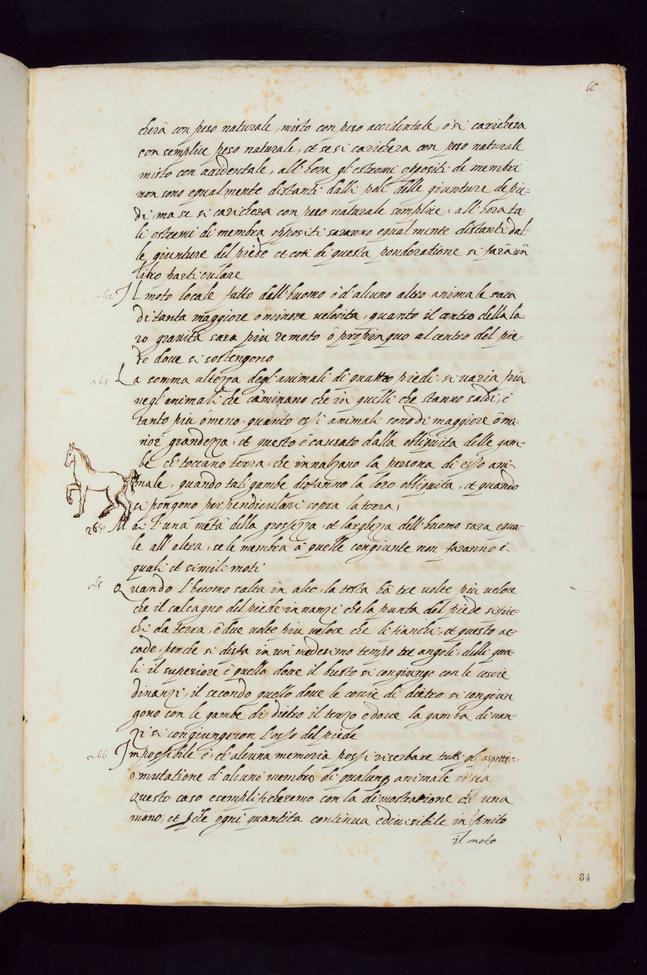 66
cherà con peso naturale, misto con peso accidentale, ò si caricherà
con semplice peso naturale, et se si caricherà con peso naturale
misto con accidentale, all'hora gl'estremi oppositi de membri
non sono egualmente distanti dalli poli delle giunture de pie-
di, ma se si caricherà con peso naturale semplice, all'hora ta-
li estremi di membra oppositi saranno egualmente distanti dal-
le giunture del piede et così di questa ponderatione si farà un
libro particulare
262 Il moto locale fatto dall'huomo ò d'alcuno altro animale sara
di tanta maggiore ò minore velocita, quanto il centro della lo-
ro gravità sara piu remoto ò propinquo al centro del pie-
de dove si sostengono
263 La somma altezza degl'animali di quattro piedi si varia piu
negl'animali che caminano che in quelli che stanno saldi, e
tanto piu ò meno, quanto essi animali sono di maggiore ò mi-
nor grandezza, et questo è causato dalla obliquita delle gam-
be, ch'toccano terra, che innalzano la persona di esso ani-
male, quando tali gambe disfanno la loro obliquità, et quando
si pongono perpendiculari sopra la terra,
264 Mai l'una metà della grossezza, et larghezza dell'huomo sara equa-
le all'altra, se le membra à quelle congiunte non faranno e-
quali et simili moti
265 Quando l'huomo salta in alto, la testa hà tre volte piu veloce
che il calcagno del piede innanzi che la punta del piede si spic-
chi da terra, e due volte piu veloce che li fianchi, et questo ac-
cade, perche si disfa in un medesimo tempo tre angoli, delli qua-
li il superiore è quello, dove il busto si congiunge con le coscie
dinanzi, il secondo quello dove le coscie di dietro si congiun
gono con le gambe di dietro il terzo è dove la gamba dinan-
zi si congiungeron l'osso del piede
266 Impossibile è, ch'alcuna memoria possi riserbare tutti gli aspetti
ò mutatione d'alcuno membro di qualunq animale si sia
questo caso esemplificheremo con la dimostratione di una
mano, et pche ogni quantità continua è divisibile in infinito
il moto
84